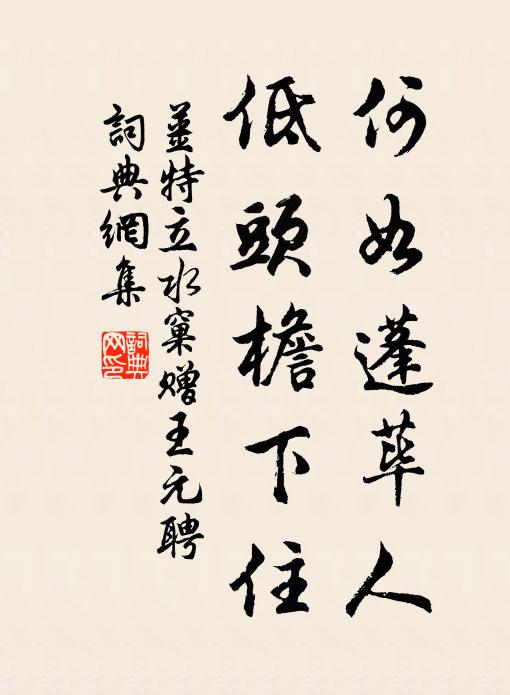 何如蓬荜人
低頭檐下住
薑特立水窠贈王元聘
詞典網集
詞典网印